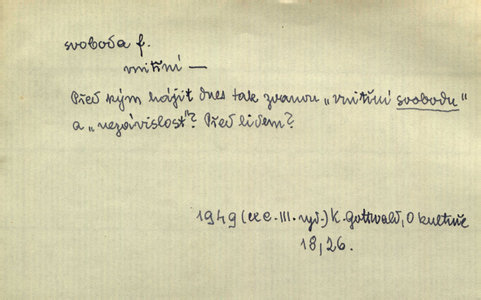 svoboda f.
vnitřní —
Před kým hájit dnes tak zvanou „vnitřní svobodu"
a „nezávislost"? Před lidem?
1949 (exc. III. vyd.) K. Gottwald, O kultuře
18, 26.